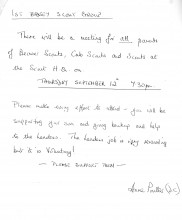 1ST BARBY SCOUT GROUP
There will be a meeting for all parents
of Beaver Scouts, Cub Scouts and Scouts at
the Scout H.Q. on
THURSDAY SEPTEMBER 12th 7.30pm
Please make every effort to attend - you will be
supporting your son and giving backup and help
to the leaders. The leaders job is very rewarding
but it is Voluntary!
~ PLEASE SUPPORT THEM ~